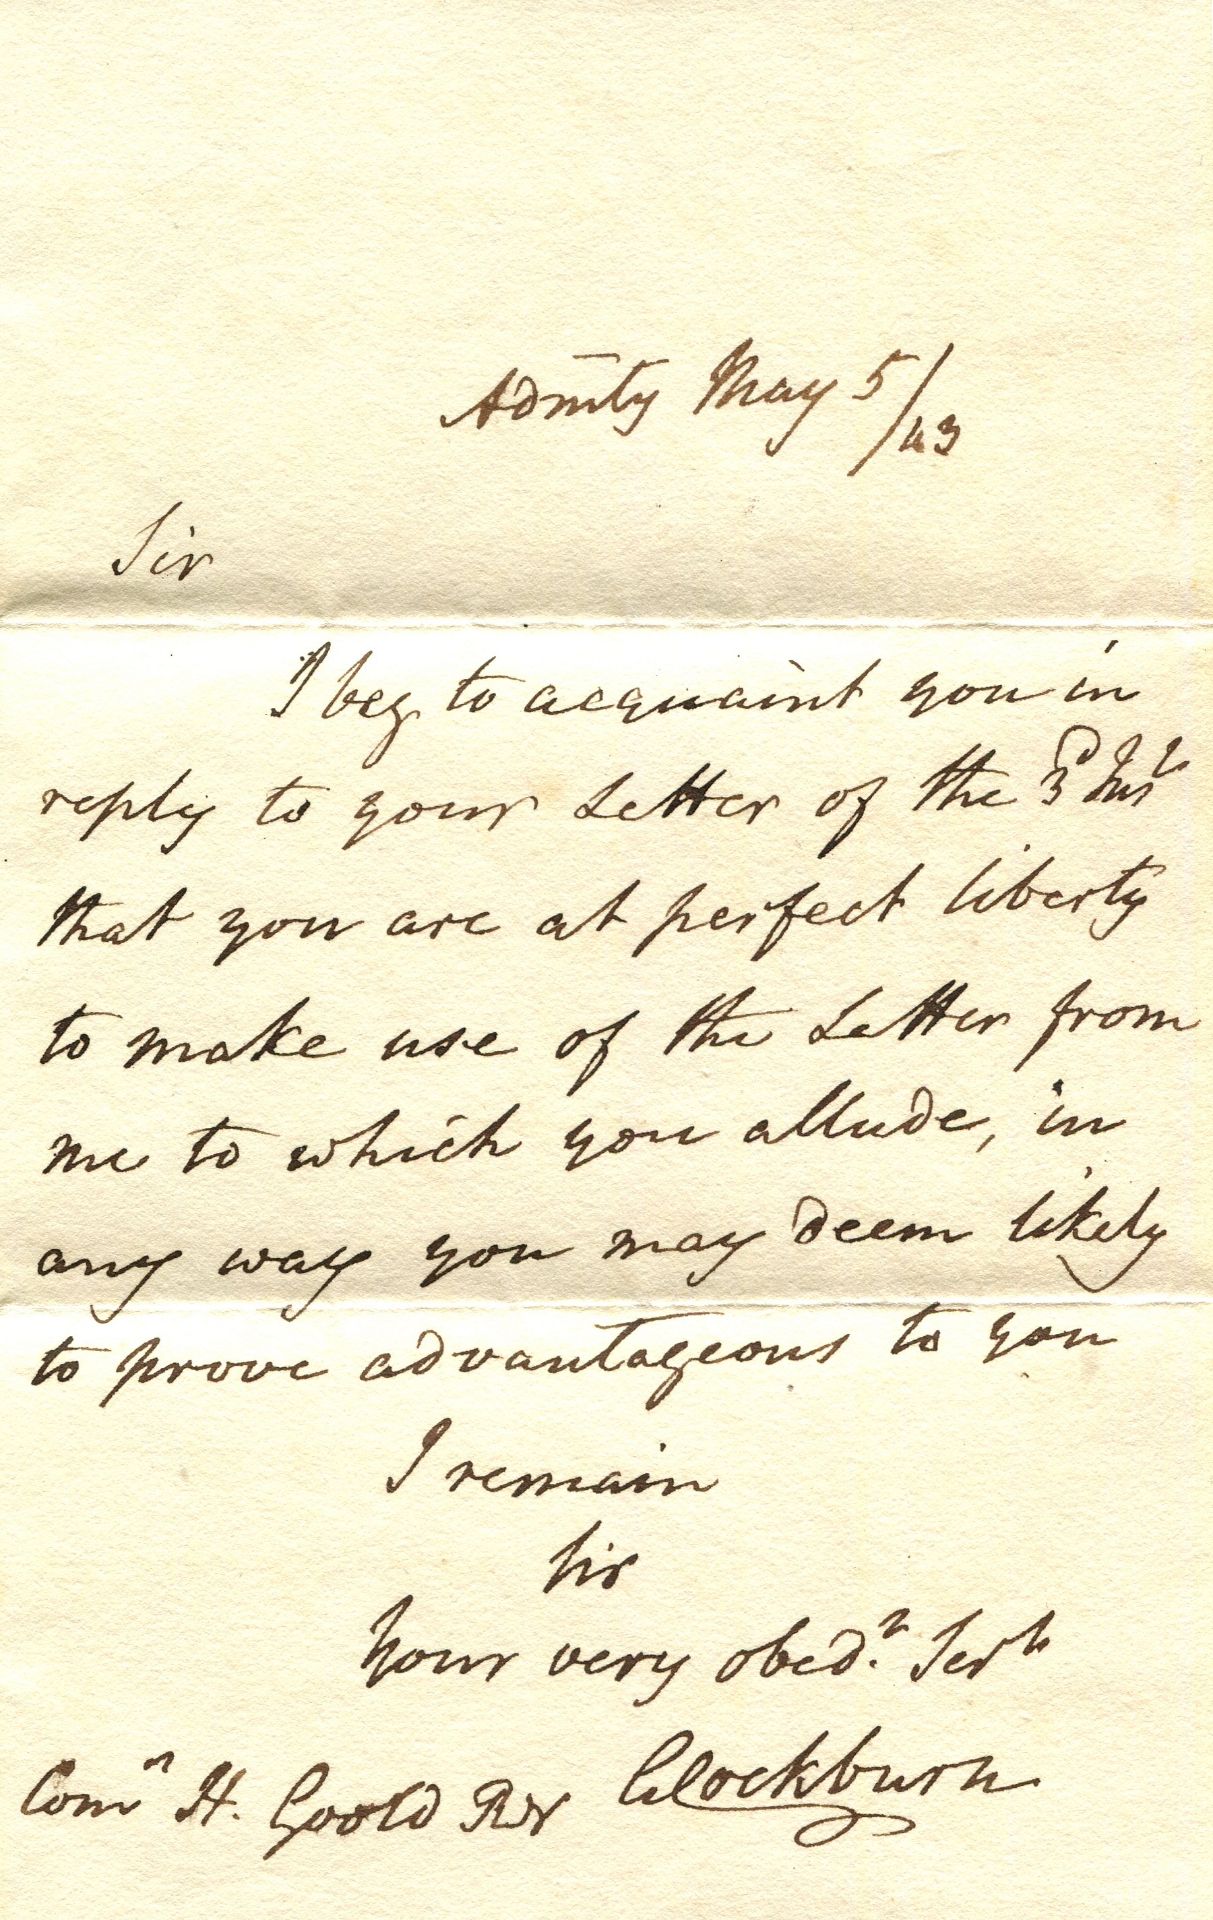 Admty May 5/43
Sir
I beg to acquaint you in
reply to your Letter of the 3d Inst
that you are at perfect liberty
to make use of the Letter from
me to which you allude, in
any way you may deem likely
to prove advantageous to you
I remain
Sir
Your very obedt. Servt
GCockburn
Comr H. Goold RN